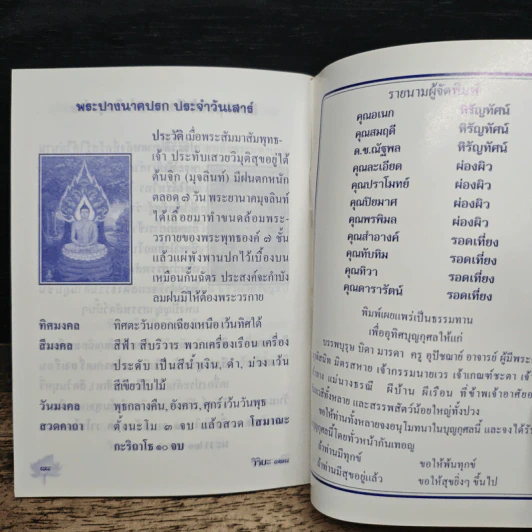 พระปางนาคปรก ประจำวันเสาร์
ประวัติ เมื่อพระสัมมาสัมพุทธ-
เจ้า ประทับเสวยวิมุติสุขอยู่ใต้
ต้นจิก (มุจลินท์) มีฝนตกหนัก
ตลอด ๗ วัน พระยานาคมุจลินท์
ได้เลื้อยมาทำขนดล้อมพระ-
วรกายของพระพุทธองค์ ๗ ชั้น
แล้วแผ่พังพานปกไว้เบื้องบน
เหมือนกั้นฉัตร ประสงค์จะกำบัง
ลมฝนมิให้ต้องพระวรกาย
ทิศมงคล ทิศตะวันออกเฉียงเหนือ เว้นทิศใต้
สีมงคล สีฟ้า สีบริวาร พวกเครื่องเรือน เครื่อง
ประดับ เป็นสีน้ำเงิน, ดำ, ม่วง เว้น
สีเขียวใบไม้
วันมงคล พุธกลางคืน, อังคาร, ศุกร์ เว้นวันพุธ
สวดคาถา ตั้งนะโม ๓ จบ แล้วสวด โสมาณะ
กะริถาโธ ๑๐ จบ
วิริยะ
รายนามผู้จัดพิมพ์
คุณอเนก หิรัญทัศน์
คุณสมฤดี หิรัญทัศน์
ด.ช.ณัฐพล หิรัญทัศน์
คุณละเอียด ผ่องผิว
คุณปราโมทย์ ผ่องผิว
คุณปิยมาศ ผ่องผิว
คุณพรพิมล ผ่องผิว
คุณสำอางค์ รอดเที่ยง
คุณทับทิม รอดเที่ยง
คุณทิวา รอดเที่ยง
คุณดารารัตน์ รอดเที่ยง
พิมพ์เผยแพร่เป็นธรรมทาน
เพื่ออุทิศบุญกุศลให้แก่
บรรพบุรุษ บิดา มารดา ครู อุปัชฌาย์ อาจารย์ ผู้มีพระ
มิตรสหาย เจ้ากรรมนายเวร เจ้าเกณฑ์ชะตา เจ้า
แม่นางธรณี ผีบ้าน ผีเรือน ที่ข้าพเจ้าอาศัยอยู่
ทั้งหลาย และสรรพสัตว์น้อยใหญ่ทั้งปวง
ขอให้ท่านทั้งหลายจงอนุโมทนาในบุญกุศลนี้ และจงได้รับ
บุญกุศลนี้โดยทั่วหน้ากันเทอญ
ถ้าท่านมีทุกข์ ขอให้พ้นทุกข์
ถ้าท่านมีสุขอยู่แล้ว ขอให้สุขยิ่งๆ ขึ้นไป